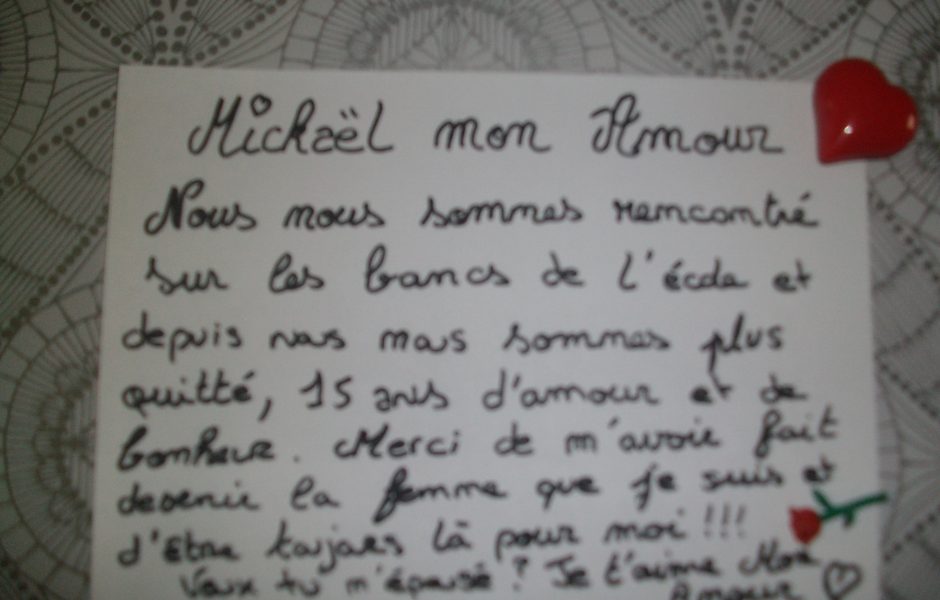 Mickaël mon Amour
Nous nous sommes rencontré
sur les bancs de l'école et
depuis nous nous sommes plus
quitté, 15 ans d'amour et de
bonheur. Merci de m'avoir fait
devenir la femme que je suis et
d'être toujours là pour moi !!!
Veux tu m'épousé ? Je t'aime Mon
Amour